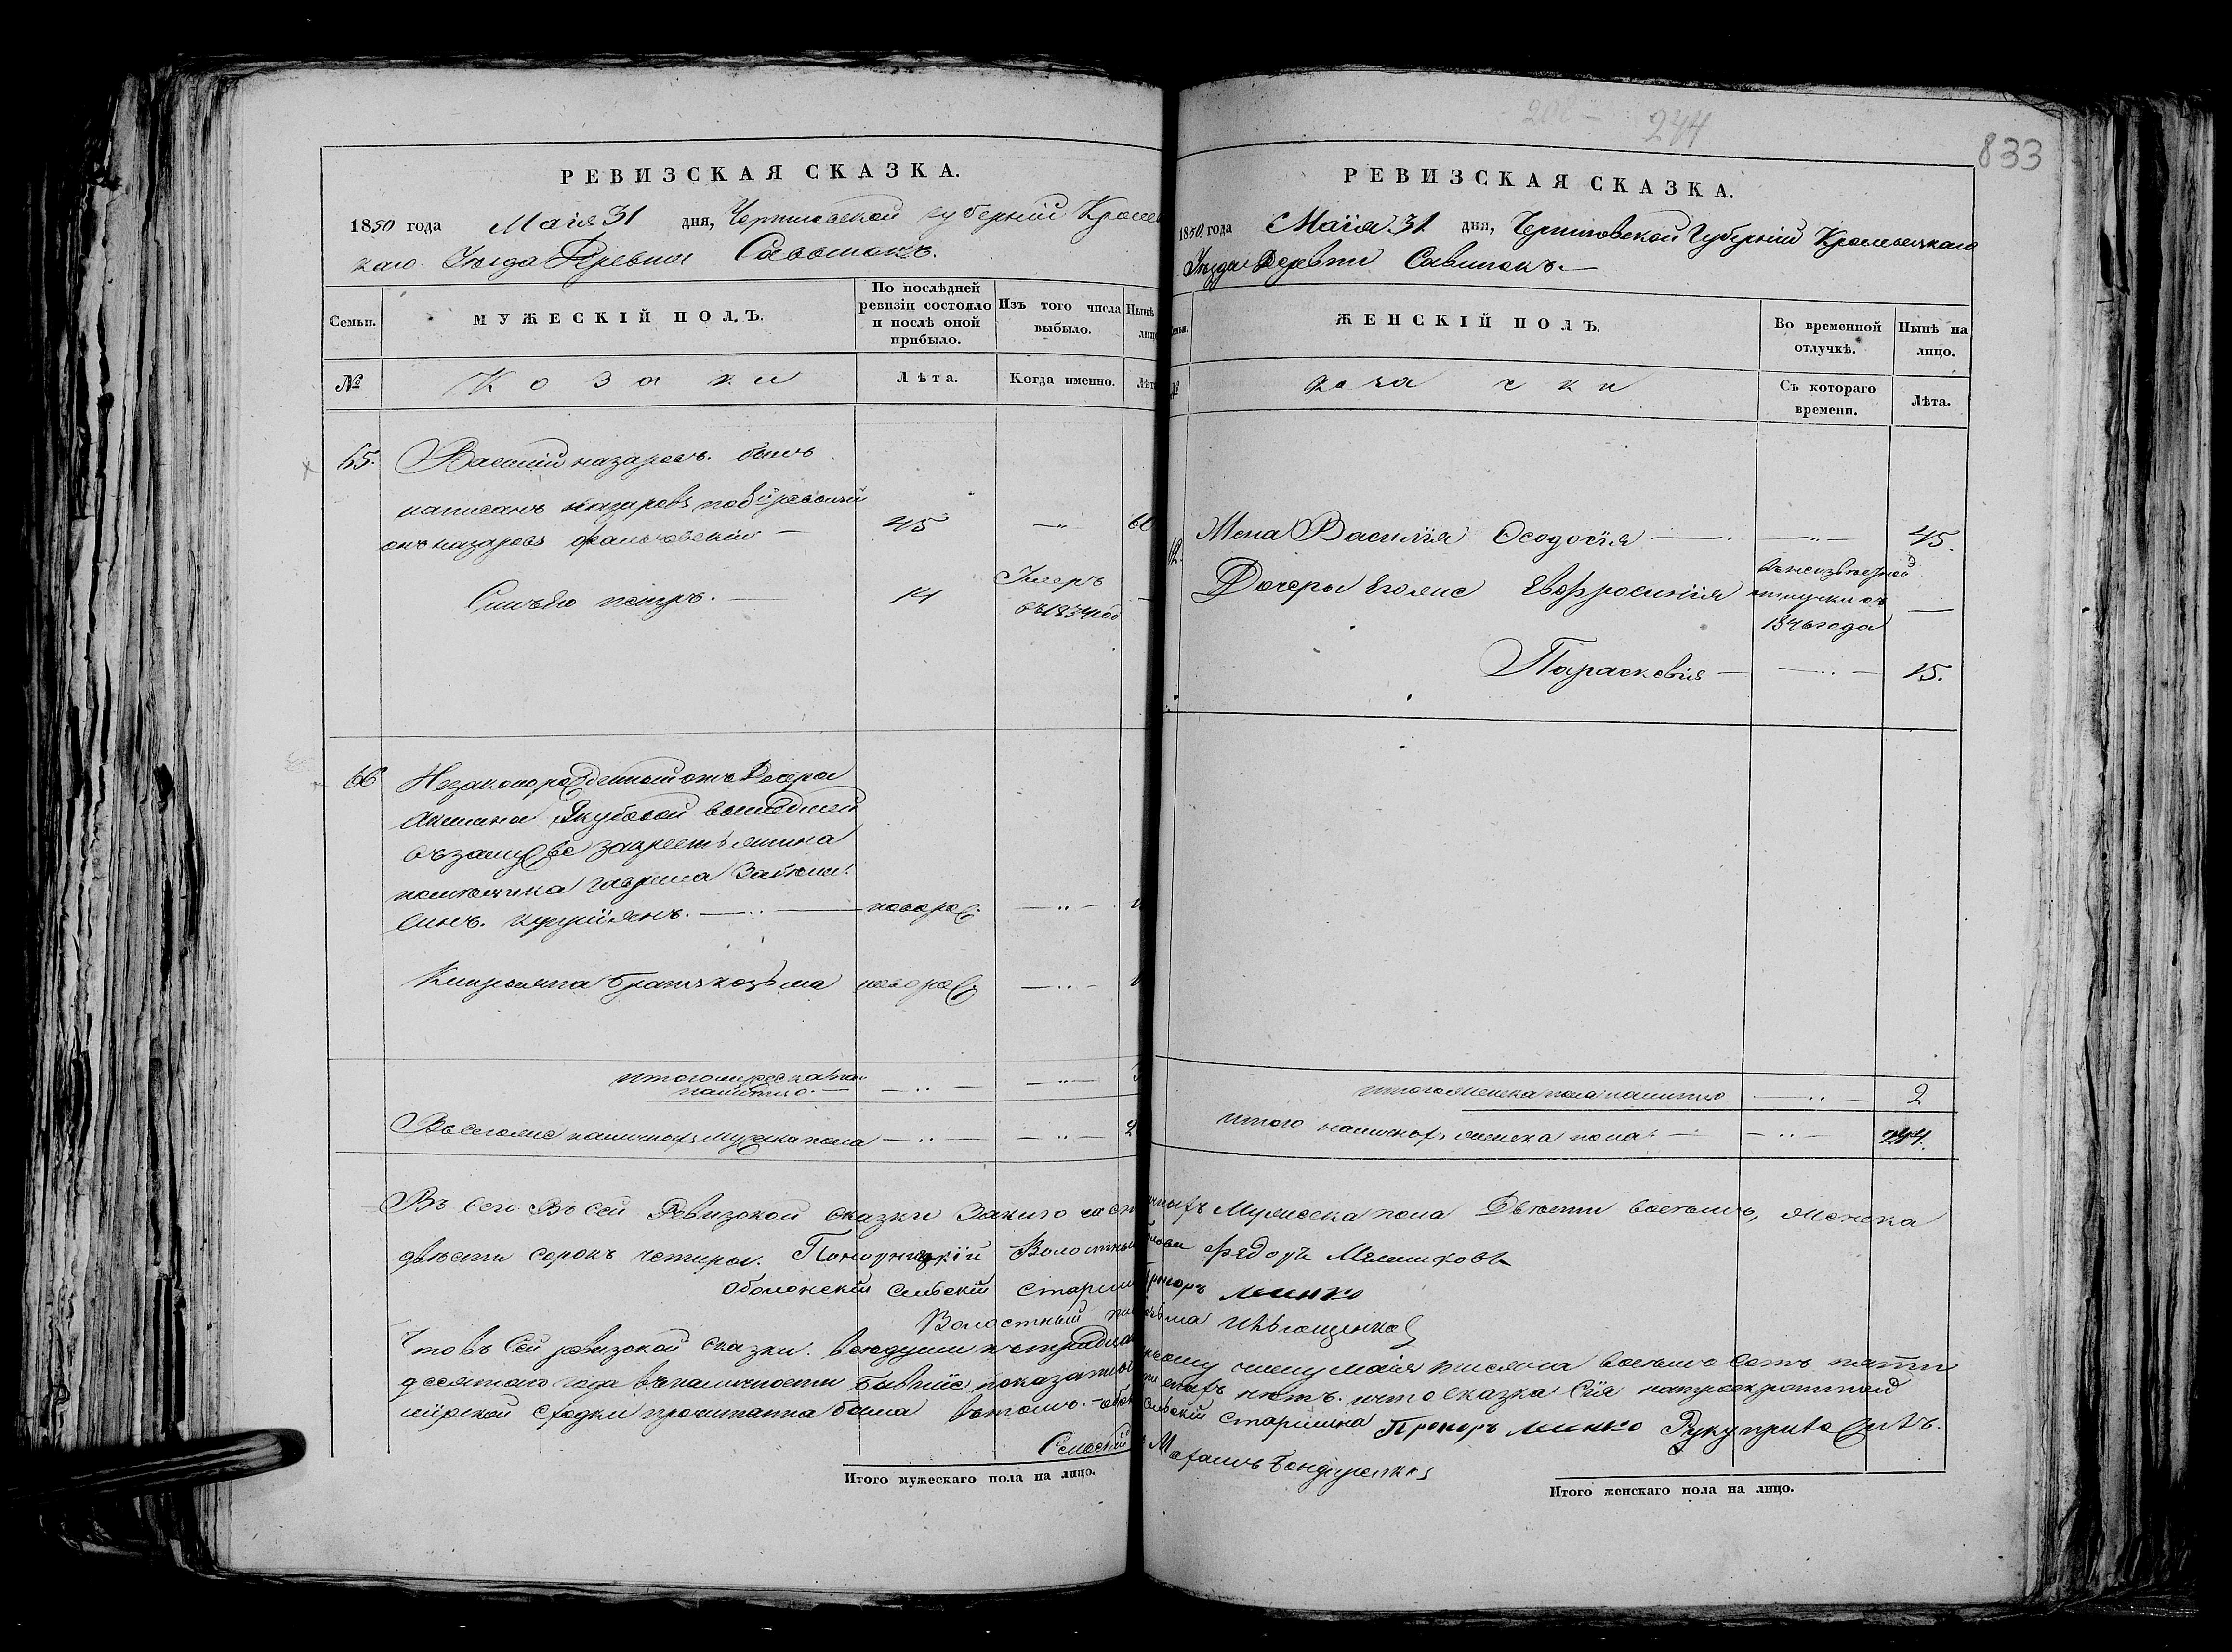 208 — 244
833
РЕВИЗСКАЯ СКАЗКА.
1850 года Маія 31 дня, Черниговской губерніи Кролев
каго Уѣзда Деревни Савинокъ.
Семьи.
МУЖЕСКІЙ ПОЛЪ.
По послѣдней
ревизіи состояло
и послѣ оной
прибыло.
Изъ того числа
выбыло.
Нынѣ
лицо
№
Козаки
Лѣта.
Когда именно.
Лѣта
65. Василій назаровъ. былъ
написанъ назаровъ по
онъ назаровъ — 45 —„— 60
Синъ Его петръ. — 14 Умеръ
въ 1834 год —
66 Незаконорожденный отъ Дочери
Якубовой вышедшей
въ замужве за крестьянина
помѣщика гаврила
Синъ. —„— новорож: —„—
Кипріяна братъ козьма новорож: —„—
итого мужеска пол
налично. — —„— —„—
Въсего же наличнахъ Мужска пола —„— —„— 2
РЕВИЗСКАЯ СКАЗКА.
1850 года Маія 31 дня, Черниговской Губерніи Кролевецкаго
Уѣзда Деревни Савинокъ. —
ЖЕНСКІЙ ПОЛЪ.
Во временной
отлучкѣ.
Нынѣ на
лицо.
№
козачки
Съ котораго
времени.
Лѣта.
Жена Василія Феодосія — —„— 45.
Дочеры Его же Евфросинія въ неизвѣстной
отлучки съ
1846 года —
Параскевія — —„— 15.
итого женска пола налично —„— 2
Итого наличнох женска пола: — —„— 244.
Въ сей Въ сей Ревизской сказки Заключаест чныхъ Мужеска пола Двѣсти восемь, женска
двѣсти сорокъ четыры. Понорницкій Волостный Голова Федоръ Мелниковъ
Оболонскій сельскій старшин Прокоръ Минко
Волостный пи
Что въ Сей ревизской сказки. вседуши к тридцать числу маія тисяча восемь сотъ пяти
десятаго года въ наличности бывшіе показаны нѣтъ. и что сказка Сія на
мірской сходки прочитанна была втомъ.— обол Сельскій старшина Прокоръ Минко Руку приложилъ.
Селскій
Итого мужескаго пола на лицо.
Итого женскаго пола на лицо.